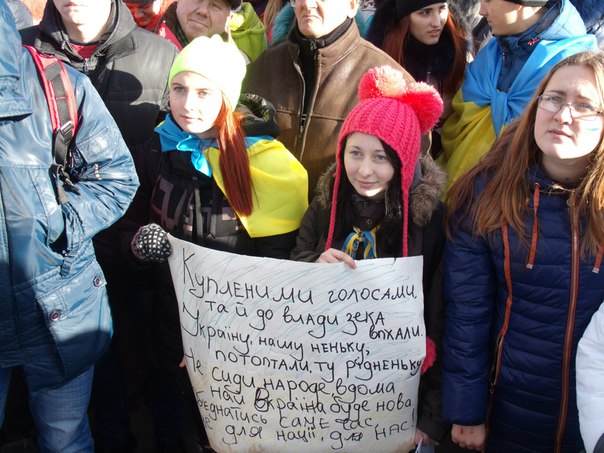 Купленими голосами,
та й до влади зека
впхали.
Україну, нашу неньку,
потоптали, ту рідненьку
Не сиди народе вдома
най Україна буде нова
єднатись саме час
є для нації, для нас!